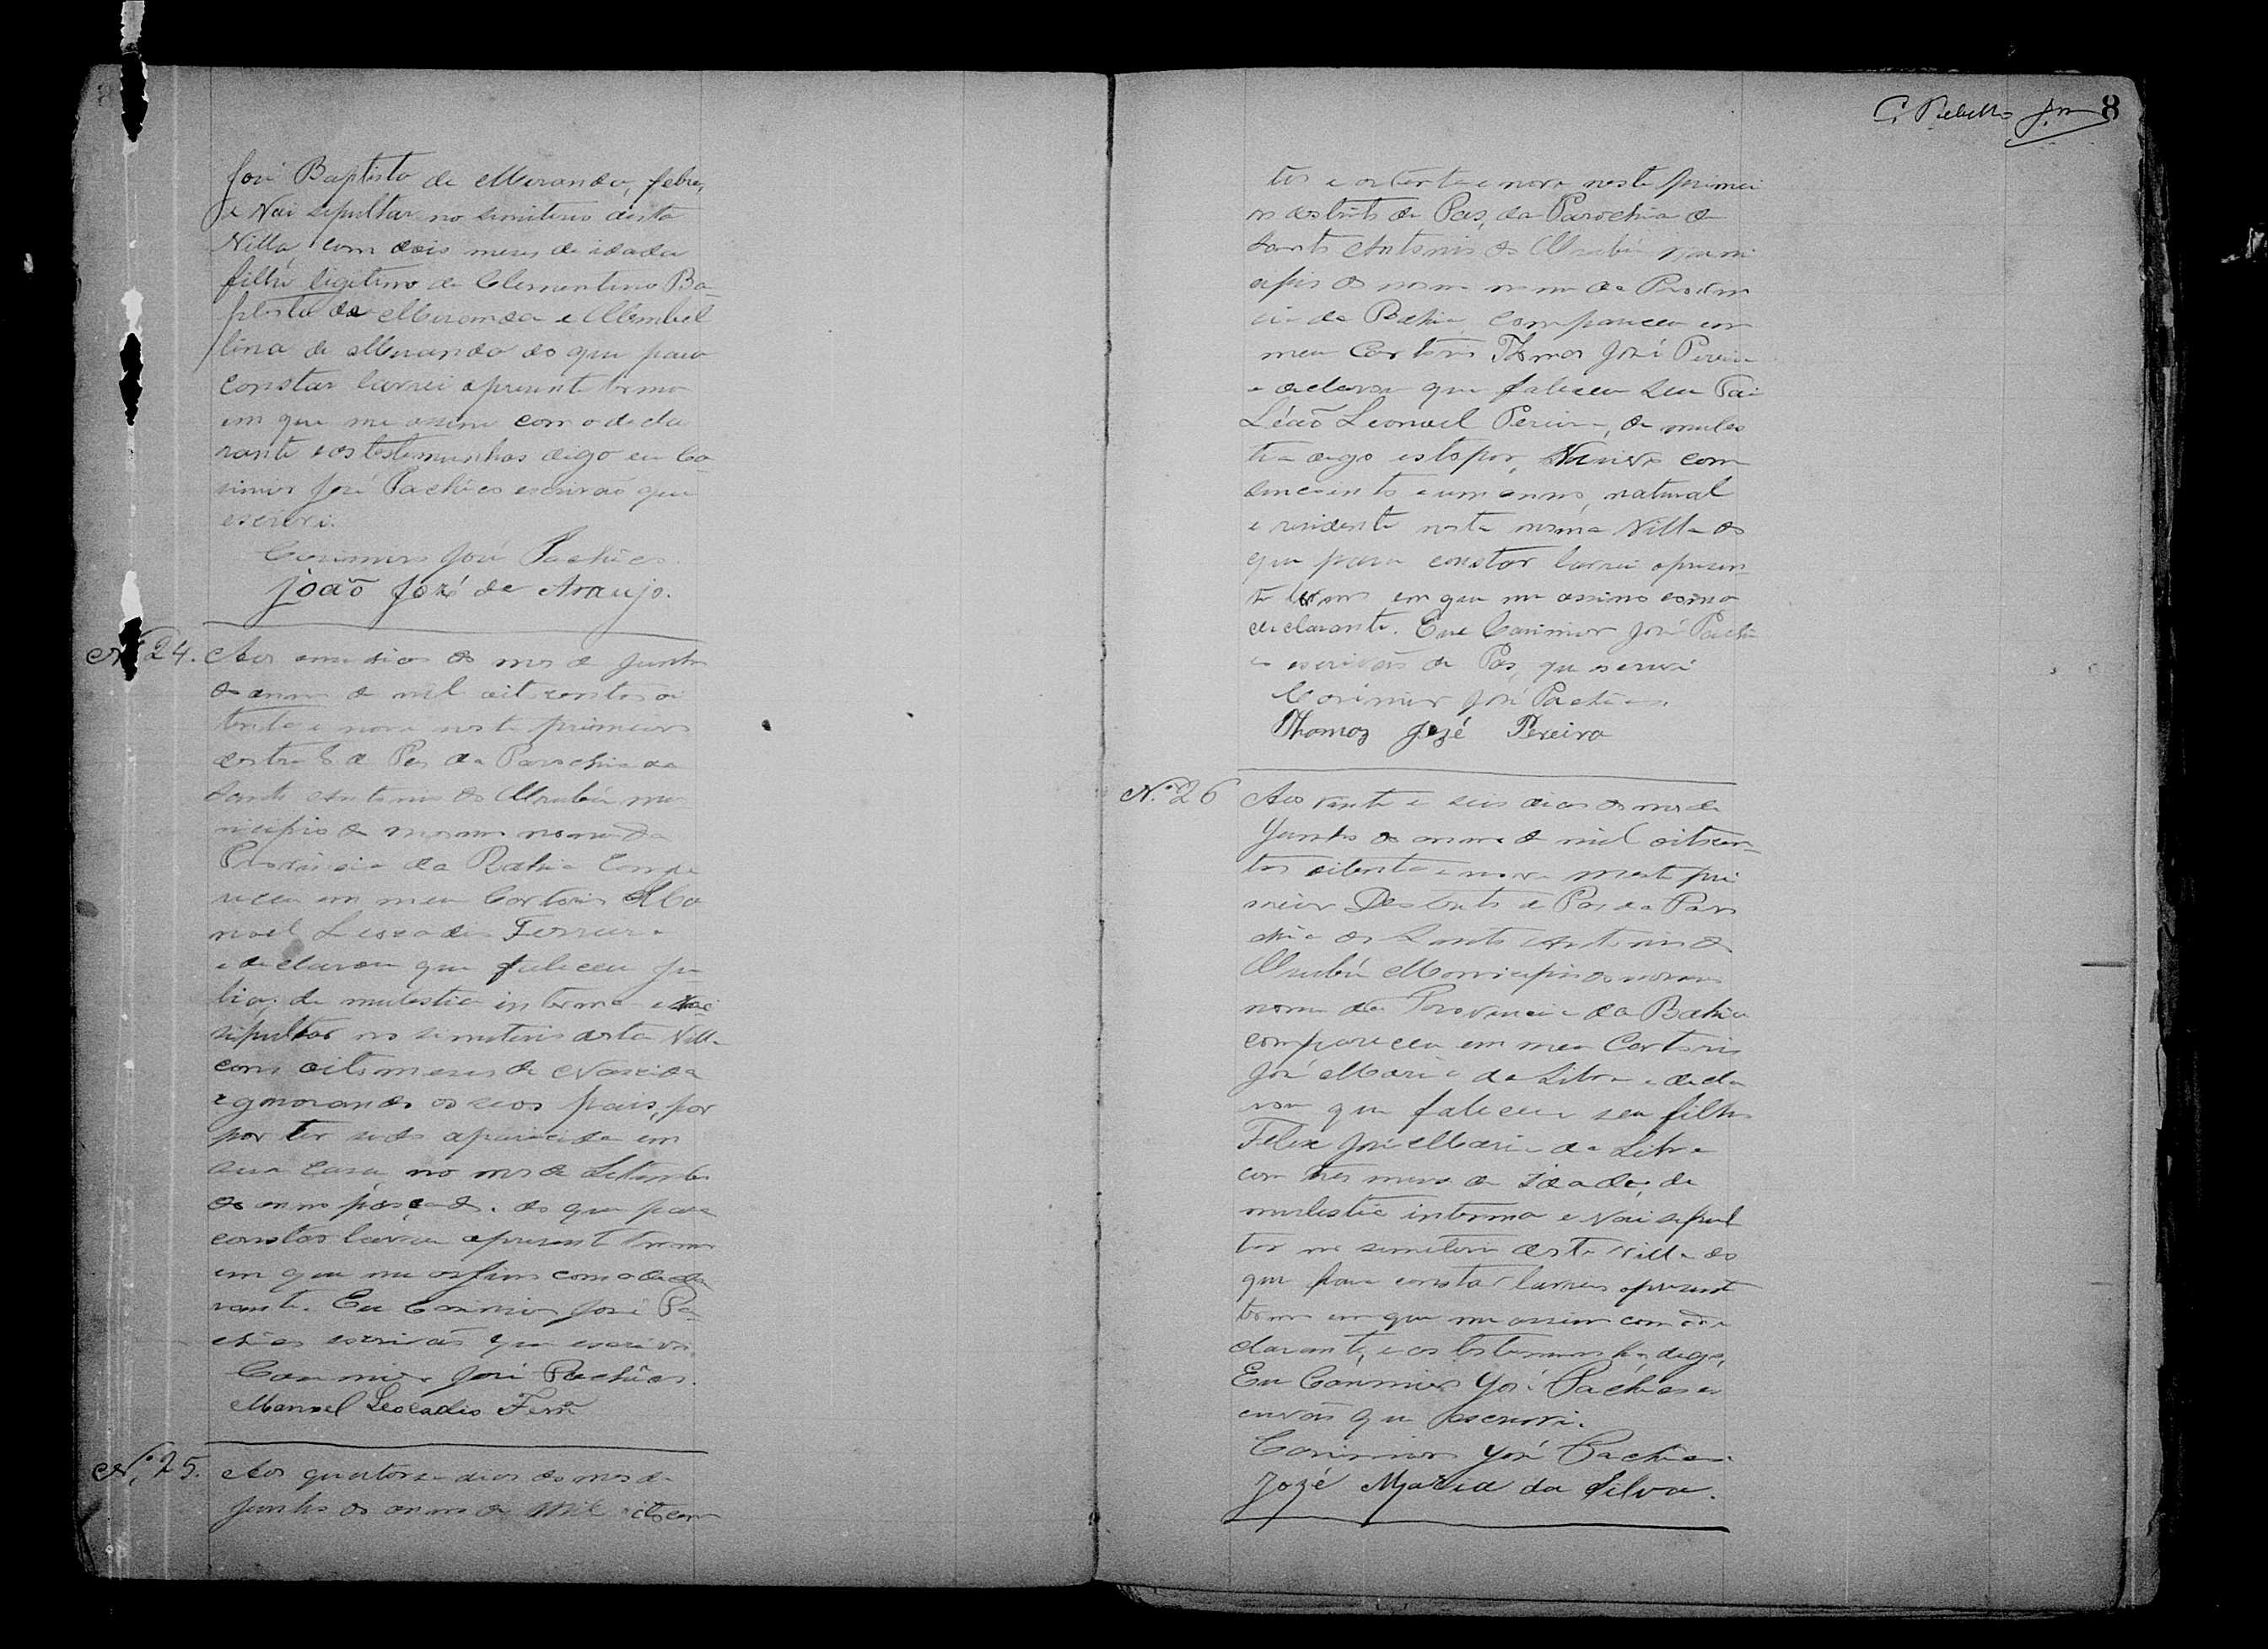 8
José Baptista de Miranda, febre,
e Vai sepultar no simiterio desta
Villa, com dois meses de idade
filho ligitimo de Clementino Ba-
ptista de Miranda e
lina de Miranda do que para
constar lavrei apresente termo
em que me assino com o decla
rante e as testemunhas digo eu Ca-
simiro José Pachêco escrivão que
escrevi.
Casimiro José Pachêco.
João José de Araujo.
Nº 24. Aos onze dias do mes de Junho
do anno de mil oitocentos oi
tenta e nove neste primeiro
destrito de Pas da Parochia de
Santo Antonio do Urubú mu
nicipio do mesmo nome da
Provincia da Bahia Compa
receu em meu Cartorio Ma
noel Leocadio Ferreira
e declarou que faleceu Ju
lia; de mulestia interna e vai
sipultar no simiterio desta Villa
com oito meses de Nascida
egnorando os seos pais, por
por ter sido aparecida em
sua casa no mes de Setembro
do anno passado. do que para
constar lavrei apresente termo
em que me assino com o decla
rante. Eu Casimiro José Pa-
chêco escrivão que escrevi.
Casimiro José Pachêco.
Manoel Leocadio Ferrª
Nº 25. Aos quatorse dias do mes de
Junho do anno de Mil oitocen
C. Rebello Jor 8
tos e oitenta e nove neste primei
ro destrito de Pas, da Parochia de
Santo Antonio do Urubú muni
cipio do mesmo nome da Provin
cia da Bahia, compareceu em
meu Cartorio Thomas José Pereira
e declarou que faleceu seu Pai
Leonael Pereira, de mules
tia digo estopor, com
sincoenta e um annos, natural
e residente nesta mesma Villa do
que para constar lavrei apresen
te termo em que me assino com o
declarante. Eu Casimiro José Pachê
co escrivão de Pas, que escrevi
Casimiro José Pachêco.
Thomaz José Pereira
Nº 26 Aos vinte e seis dias do mes de
Junho do anno de mil oitocen-
tos oitenta e nove neste pri
meiro Destrito de Pas da Paro
chia de Santo Antonio do
Urubú Monicipio do mesmo
nome da Provincia da Bahia
compareceu em meu Cartorio
José Maria da Silva e decla
rou que faleceu seu filho
Felix José Maria da Silva
com tres meses de Idade, de
mulestia interna e Vai sepul
tar no simiterio desta Villa do
que para constar lavrei apresente
termo em que me assino com o de
clarante, e as testemunhas digo,
Eu Casimiro José Pachêco es
crivão que escrevi.
Casimiro José Pachêco.
José Maria da Silva.